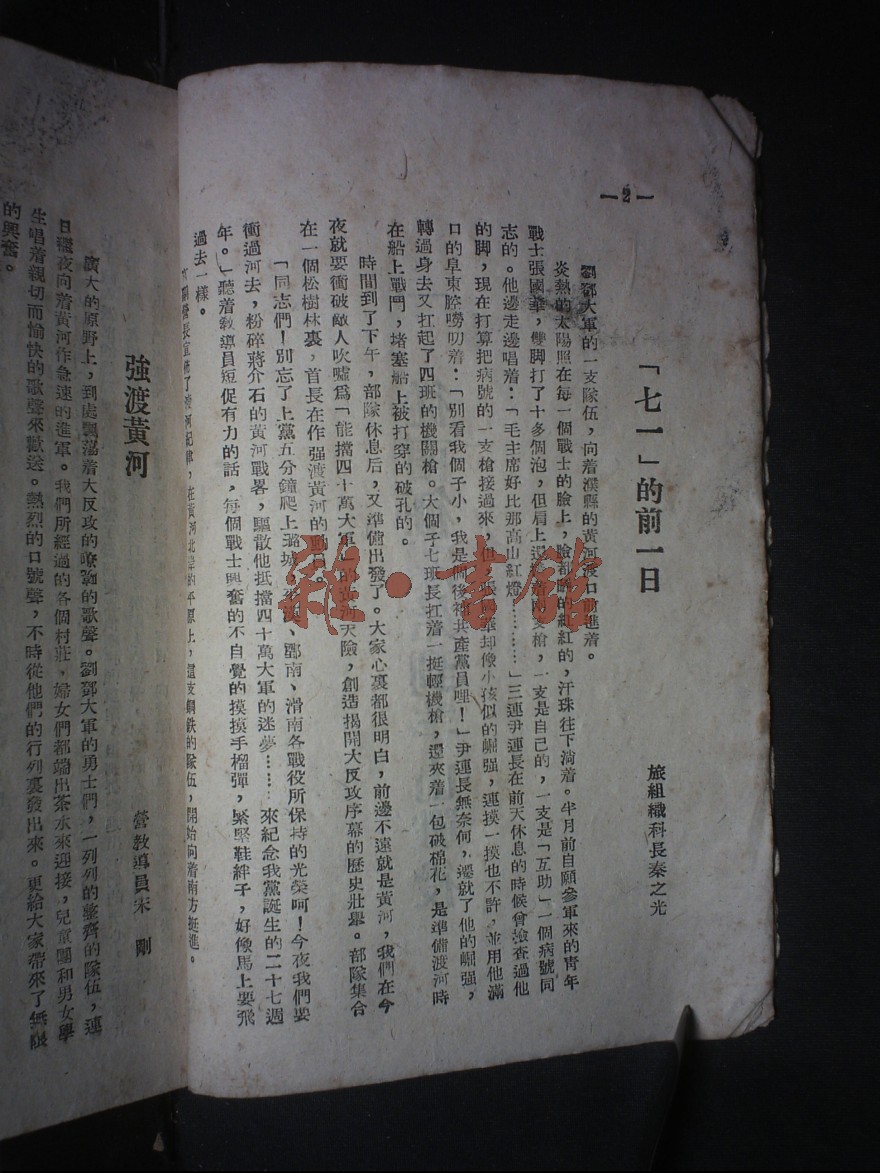 —2—
「七一」的前一日
旅組織科長秦之光
劉鄧大軍的一支隊伍，向着濮縣的黃河渡口前進着。
炎熱的太陽照在每一個戰士的臉上，臉都晒的紅紅的，汗珠往下淌着。半月前自願參軍來的青年
戰士張國華，雙脚打了十多個泡，但肩上還扛着兩支槍，一支是自己的，一支是「互助」一個病號同
志的。他邊走邊唱着：「毛主席好比那高山紅燈………」三連尹連長在前天休息的時候曾檢查過他
的脚，現在打算把病號的一支槍接過來，但張國華却像小孩似的崛强，連摸一摸也不許，並用他滿
口的阜東腔嘮叨着：「別看我個子小，我是個後補共產黨員哩！」尹連長無奈何，遷就了他的崛强，
轉過身去又扛起了四班的機關槍。大個子七班長扛着一挺輕機槍，還夾着一包破棉花，是準備渡河時
在船上戰鬥，堵塞船上被打穿的破孔的。
時間到了下午，部隊休息后，又準備出發了。大家心裏都很明白，前邊不遠就是黃河，我們在今
夜就要衝破敵人吹噓爲「能擋四十萬大軍」的黃河天險，創造揭開大反攻序幕的歷史壯舉。部隊集合
在一個松樹林裏，首長在作强渡黃河的動員。
「同志們！別忘了上黨五分鐘爬上潞城、 、鄄南、滑南各戰役所保持的光榮呵！今夜我們要
衝過河去，粉碎蔣介石的黃河戰畧，驅散他抵擋四十萬大軍的迷夢……來紀念我黨誕生的二十七週
年。」聽着教導員短促有力的話，每個戰士興奮的不自覺的摸摸手榴彈，緊緊鞋絆子，好像馬上要飛
過去一樣。
營長宣佈了渡河紀律，在黃河北岸的平原上，這支鋼鉄的隊伍，開始向着南方挺進。
強渡黃河
營教導員宋　剛
廣大的原野上，到處飄蕩着大反攻的嘹喨的歌聲。劉鄧大軍的勇士們，一列列的整齊的隊伍，連
日連夜向着黃河作急速的進軍。我們所經過的各個村莊，婦女們都端出茶水來迎接，兒童團和男女學
生唱着親切而愉快的歌聲來歡送。熱烈的口號聲，不時從他們的行列裏發出來。更給大家帶來了無限
的興奮。
雜·書館